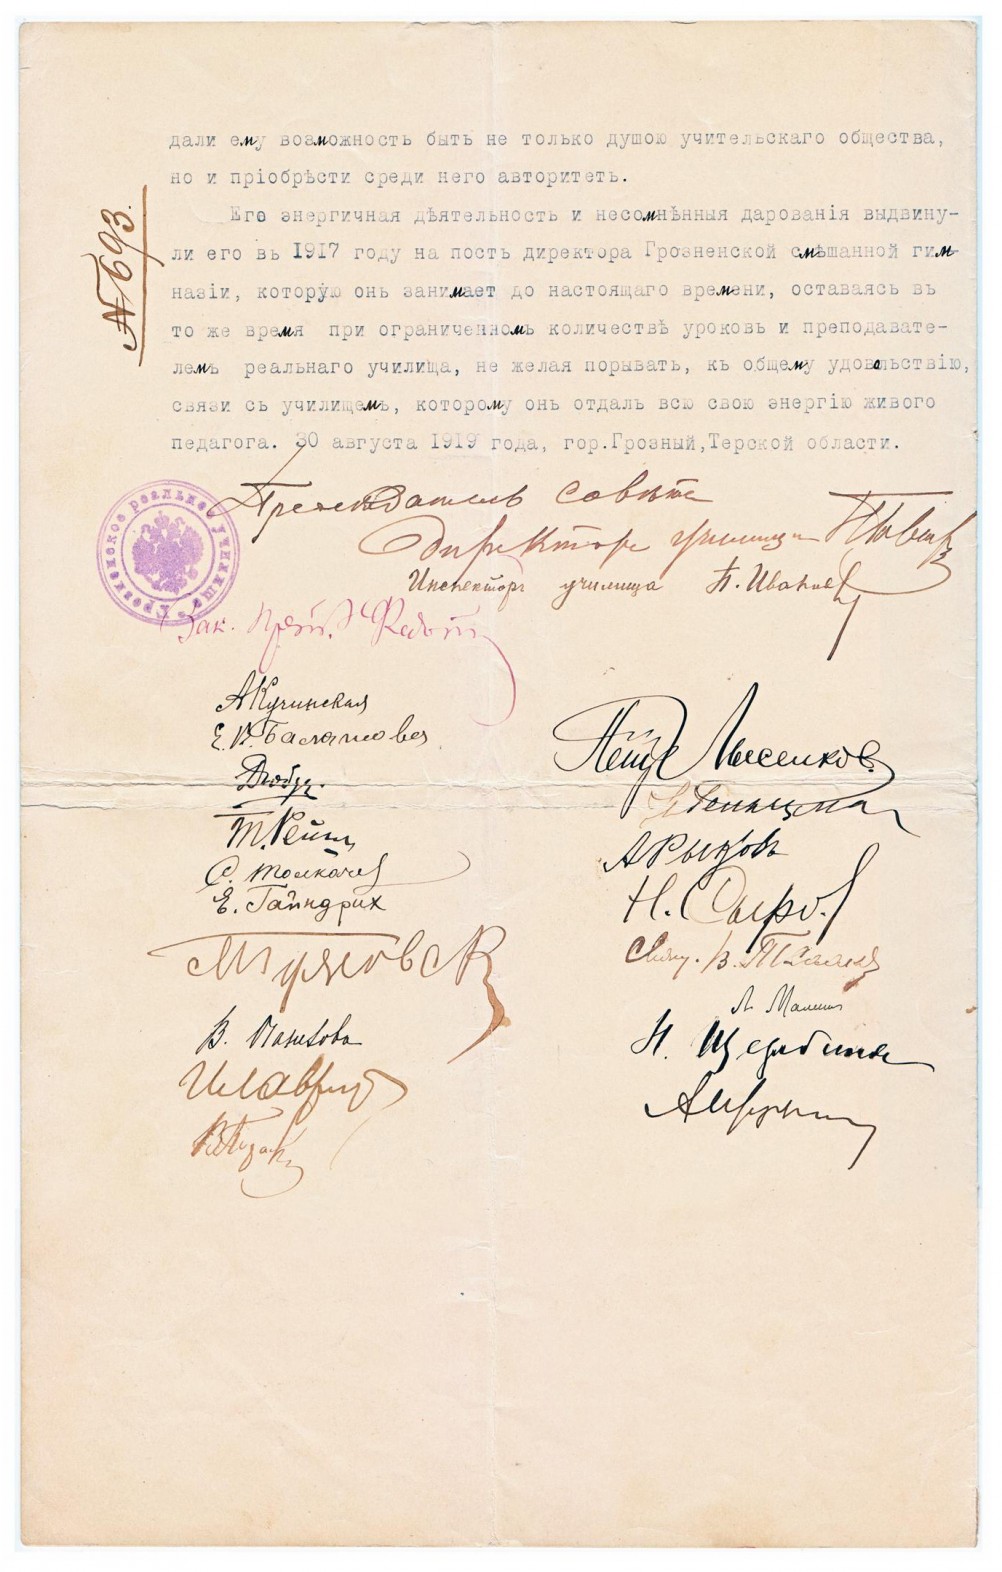 дали ему возможность быть не только душою учительскаго общества,
но и пріобрѣсти среди него авторитетъ.
Его энергичная дѣятельность и несомнѣнныя дарованія выдвину-
ли его въ 1917 году на постъ директора Грозненской смѣшанной гим-
назіи, которую онъ занимаетъ до настоящаго времени, оставаясь въ
то же время при ограниченномъ количествѣ уроковъ и преподавате-
лемъ реальнаго училища, не желая порывать, къ общему удовольствію,
связи съ училищемъ, которому онъ отдалъ всю свою энергію живого
педагога. 30 августа 1919 года, гор.Грозный,Терской области.
№ 693.
Предсѣдатель совѣта
Директоръ училища
Грозненское реальное училище
Инспекторъ училища П. Иванов
Зак. Прот.
А Кучинская
Е. В. Балашова
Пётръ Лысенков
Т. Рейтъ
А Рыжовъ
С. Толкачев
Е. Гайндрих
Н. Сыро
В. Панкова
Н. Щербина